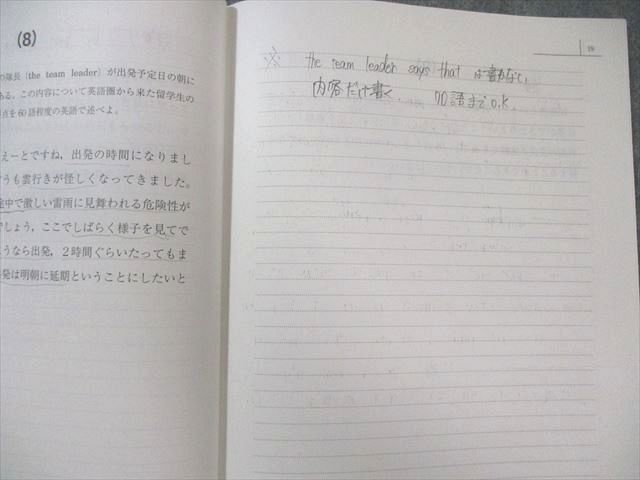 (8)
の隊長〔the team leader〕が出発予定日の朝に
ある。この内容について英語圏から来た留学生の
点を60語程度の英語で述べよ。
えーとですね，出発の時間になりまし
うも雲行きが怪しくなってきました。
途中で激しい雷雨に見舞われる危険性が
でしょう，ここでしばらく様子を見てで
ようなら出発，2時間ぐらいたってもま
発は明朝に延期ということにしたいと
19
※ the team leader says that は書かなくてい
内容だけ書く． 70語まで O.K.